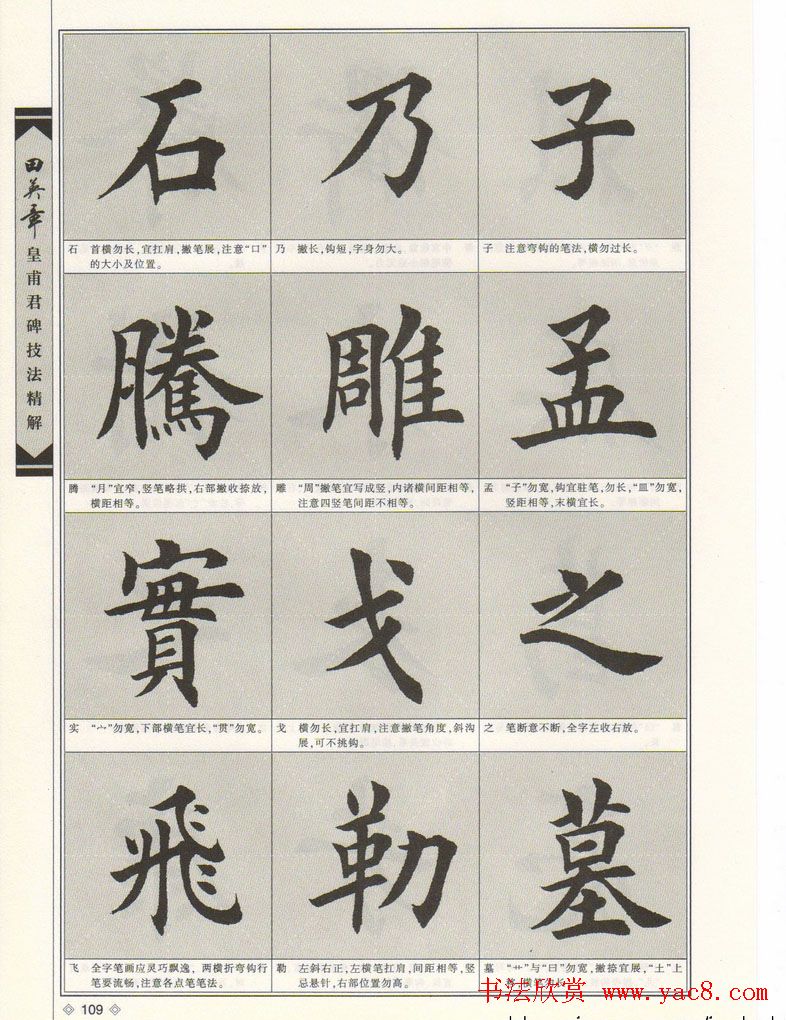 田英章
皇甫君碑技法精解
石
乃
子
石 首横勿长，宜扛肩，撇笔展，注意“口”
的大小及位置。
乃 撇长，钩短，字身勿大。
子 注意弯钩的笔法，横勿过长。
騰
雕
孟
腾 “月”宜窄，竖笔略拱，右部撇收捺放，
横距相等。
雕 “周”撇笔宜写成竖，内诸横间距相等，
注意四竖笔间距不相等。
孟 “子”勿宽，钩宜驻笔，勿长，“皿”勿宽，
竖距相等，末横宜长。
實
戈
之
实 “宀”勿宽，下部横笔宜长，“贯”勿宽。
戈 横勿长，宜扛肩，注意撇笔角度，斜沟
展，可不挑钩。
之 笔断意不断，全字左收右放。
飛
勒
墓
飞 全字笔画应灵巧飘逸，两横折弯钩行
笔要流畅，注意各点笔笔法。
勒 左斜右正，左横笔扛肩，间距相等，竖
忌悬针，右部位置勿高。
墓 “艹”与“曰”勿宽，撇捺宜展，“土”上
横笔勿长。
109
书法欣赏 www.yac8.com